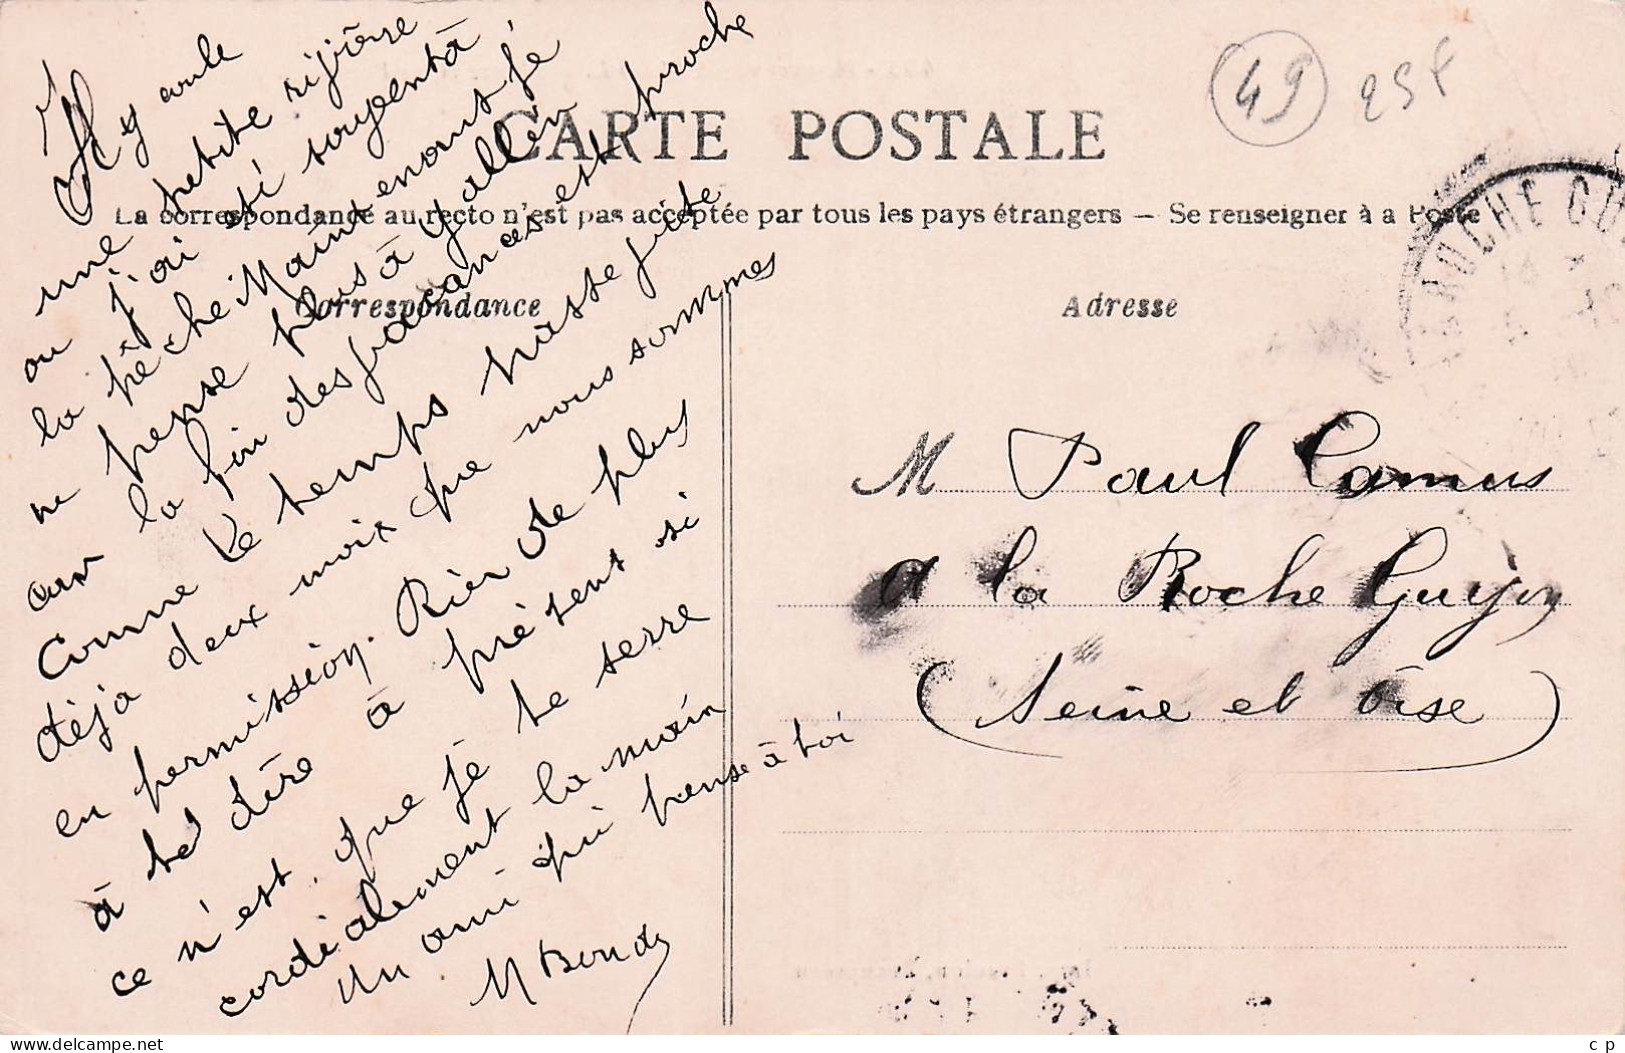 49
25 F
CARTE POSTALE
La correspondance au recto n'est pas acceptée par tous les pays étrangers — Se renseigner à a Poste
Correspondance
Adresse
ROCHE GU
Il y coule
une petite rijière
ou j'ai été souvent à
la pêche Maintenant je
ne pense plus à y aller
car la fin des vacances est proche
Comme le temps passe vite
déjà deux mois que nous sommes
en permission. Rien de plus
à te dire à présent si
ce n'est que je te serre
cordialement la main
un ami qui pense à toi
M Bondy
M Paul Camus
a la Roche Guyon
(Seine et Oise)